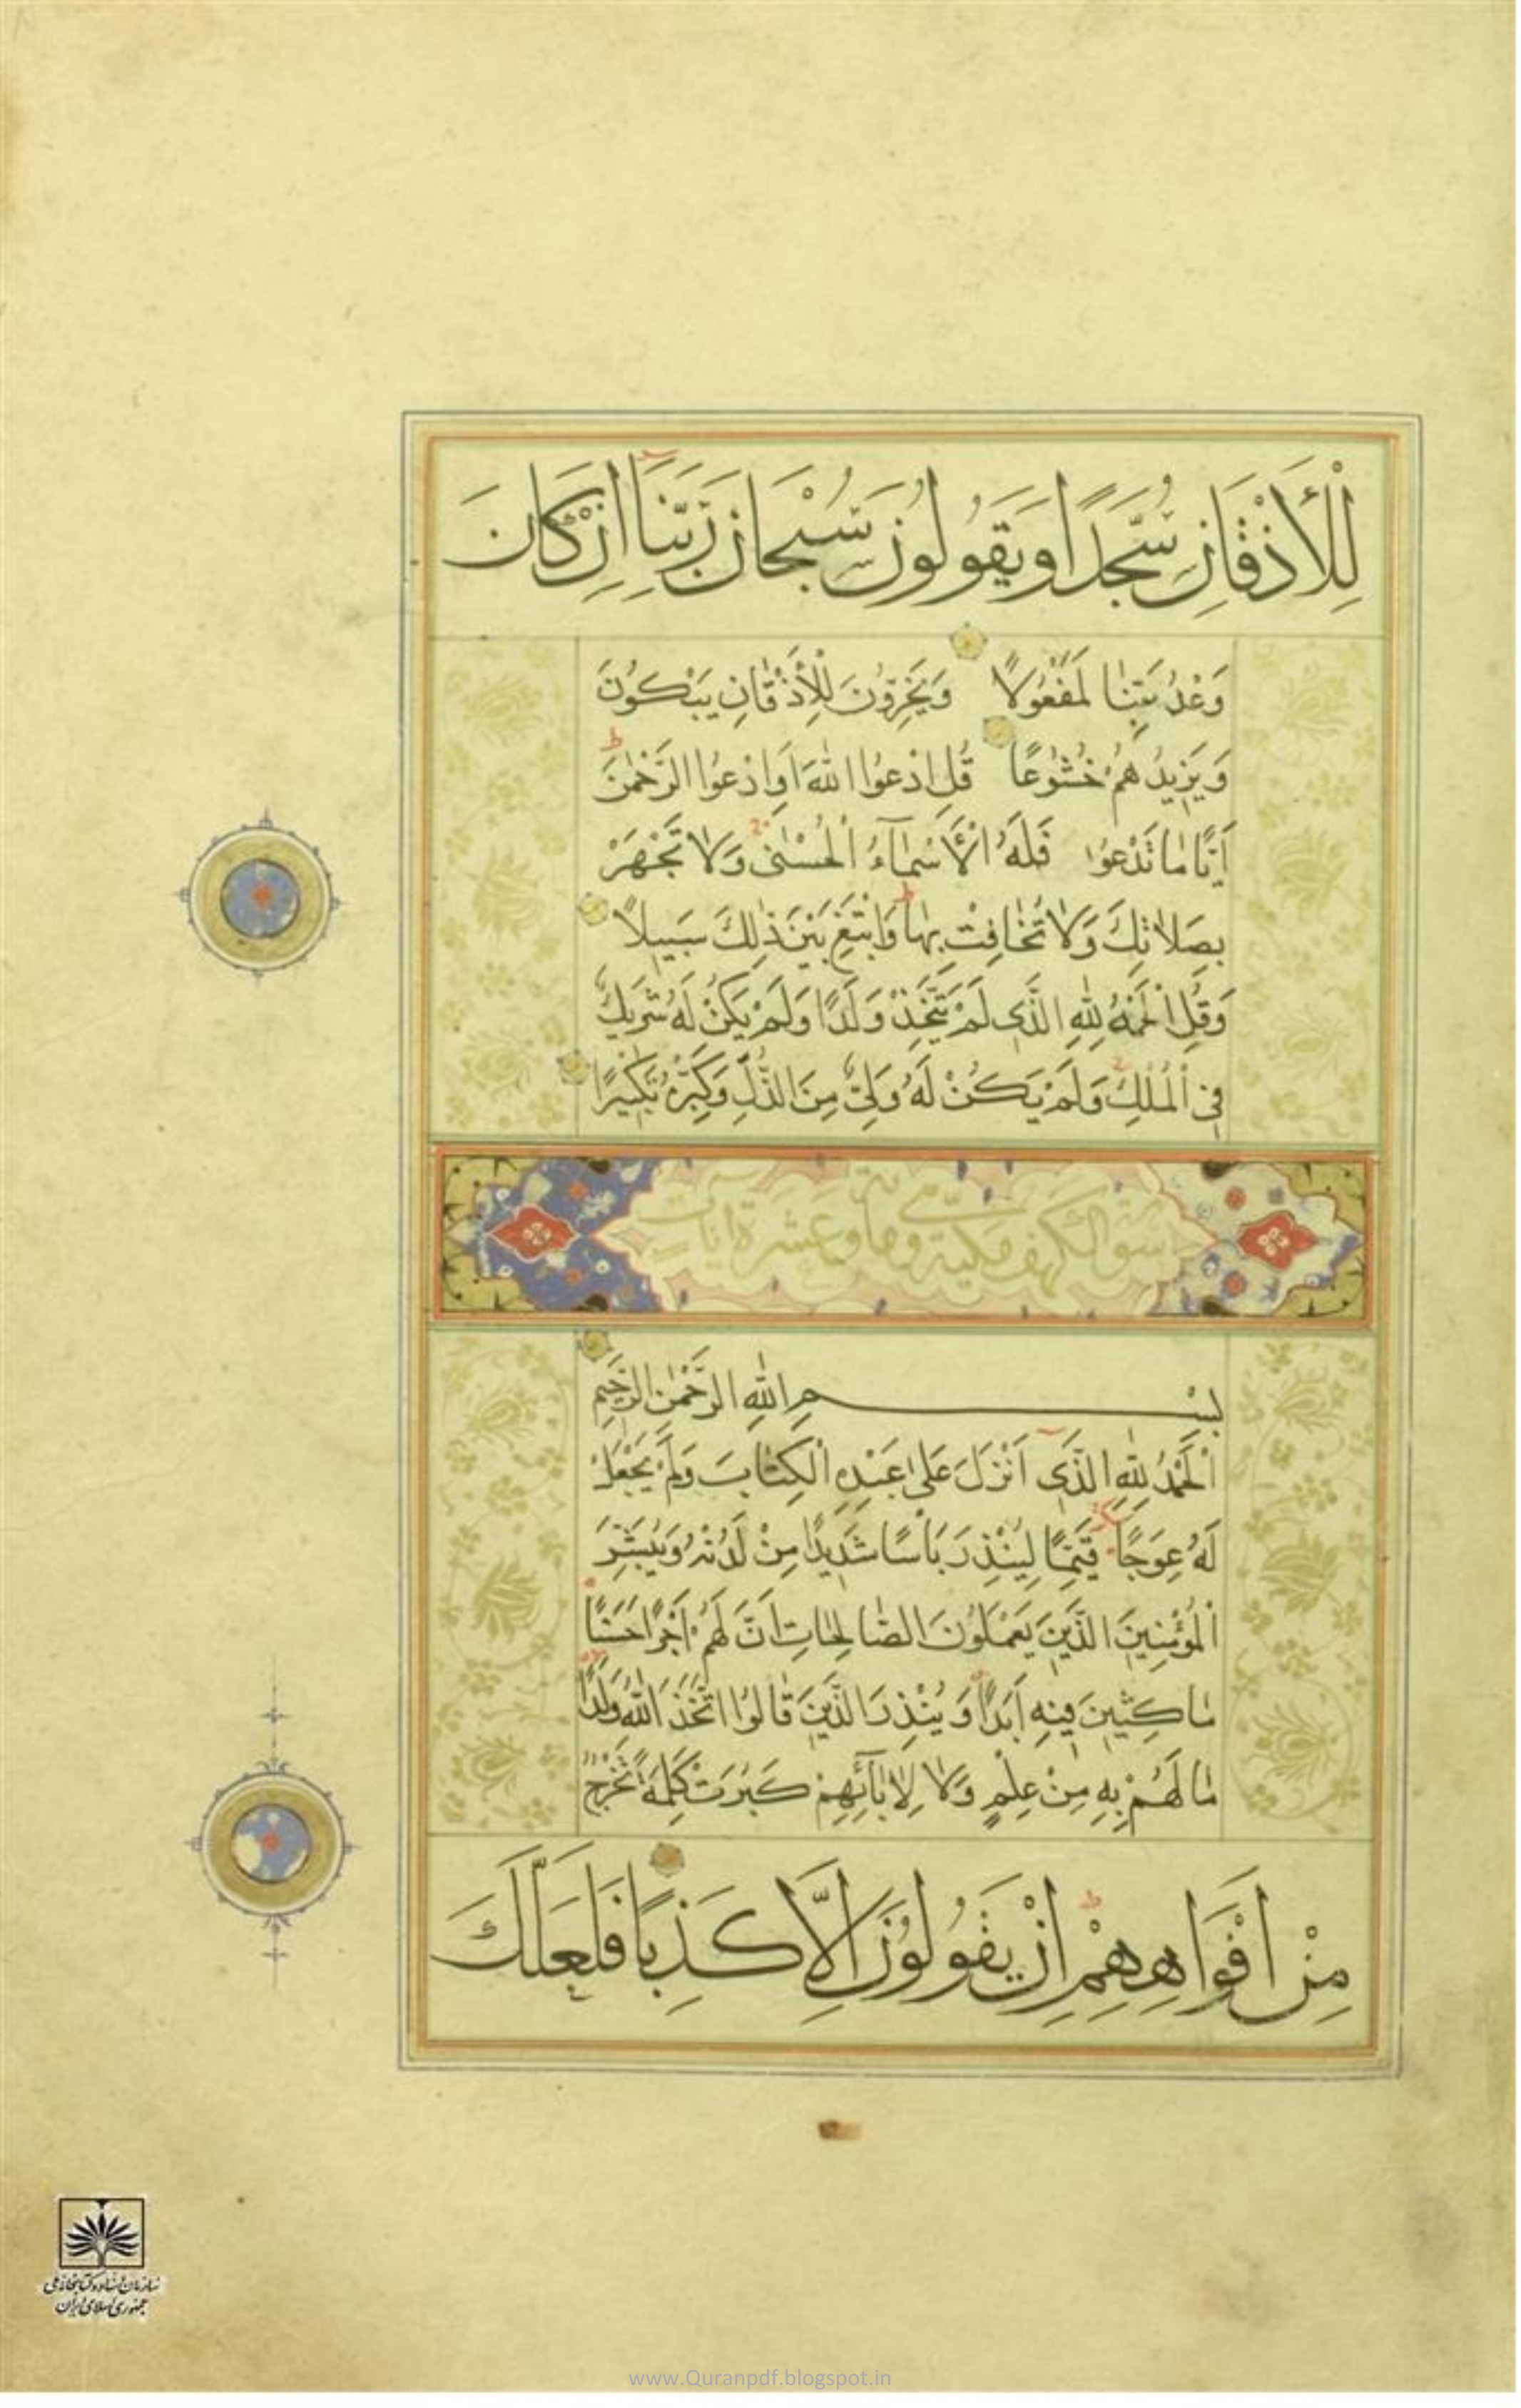 لِلْأَذْقَانِ سُجَّدًا وَيَقُولُونَ سُبْحَانَ رَبِّنَا اِنْ كَانَ
وَعْدُ رَبِّنَا لَمَفْعُولًا وَيَخِرُّونَ لِلْأَذْقَانِ يَبْكُونَ
وَيَزِيدُهُمْ خُشُوعًا قُلِ ادْعُوا اللّٰهَ اَوِ ادْعُوا الرَّحْمٰنَ
اَيًّا مَا تَدْعُوا فَلَهُ الْأَسْمَآءُ الْحُسْنٰى وَلَا تَجْهَرْ
بِصَلَاتِكَ وَلَا تُخَافِتْ بِهَا وَابْتَغِ بَيْنَ ذٰلِكَ سَبِيلًا
وَقُلِ الْحَمْدُ لِلّٰهِ الَّذِى لَمْ يَتَّخِذْ وَلَدًا وَلَمْ يَكُنْ لَهُ شَرِيكٌ
فِى الْمُلْكِ وَلَمْ يَكُنْ لَهُ وَلِىٌّ مِنَ الذُّلِّ وَكَبِّرْهُ تَكْبِيرًا
سورة الكهف مكية وهى مائة وعشرة آيات
بِسْمِ اللّٰهِ الرَّحْمٰنِ الرَّحِيمِ
اَلْحَمْدُ لِلّٰهِ الَّذِى اَنْزَلَ عَلٰى عَبْدِهِ الْكِتَابَ وَلَمْ يَجْعَلْ
لَهُ عِوَجًا قَيِّمًا لِيُنْذِرَ بَأْسًا شَدِيدًا مِنْ لَدُنْهُ وَيُبَشِّرَ
الْمُؤْمِنِينَ الَّذِينَ يَعْمَلُونَ الصَّالِحَاتِ اَنَّ لَهُمْ اَجْرًا حَسَنًا
مَاكِثِينَ فِيهِ اَبَدًا وَيُنْذِرَ الَّذِينَ قَالُوا اتَّخَذَ اللّٰهُ وَلَدًا
مَا لَهُمْ بِهِ مِنْ عِلْمٍ وَلَا لِاٰبَآئِهِمْ كَبُرَتْ كَلِمَةً تَخْرُجُ
مِنْ اَفْوَاهِهِمْ اِنْ يَقُولُونَ اِلَّا كَذِبًا فَلَعَلَّكَ
سازمان اسناد و کتابخانه ملی
جمهوری اسلامی ایران
www.Quranpdf.blogspot.in